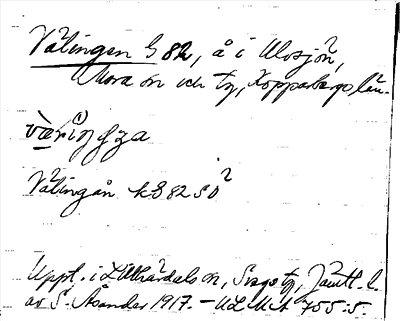 Välingen G 82, å i Mosjön,
Mora sn och tg, Kopparbergs län.
Välingån k G 82 SO
Uppt. i Lillhärdals sn, Svegs tg, Jämtl. l.
av S. Åsander 1917. – ULMA 755:5.